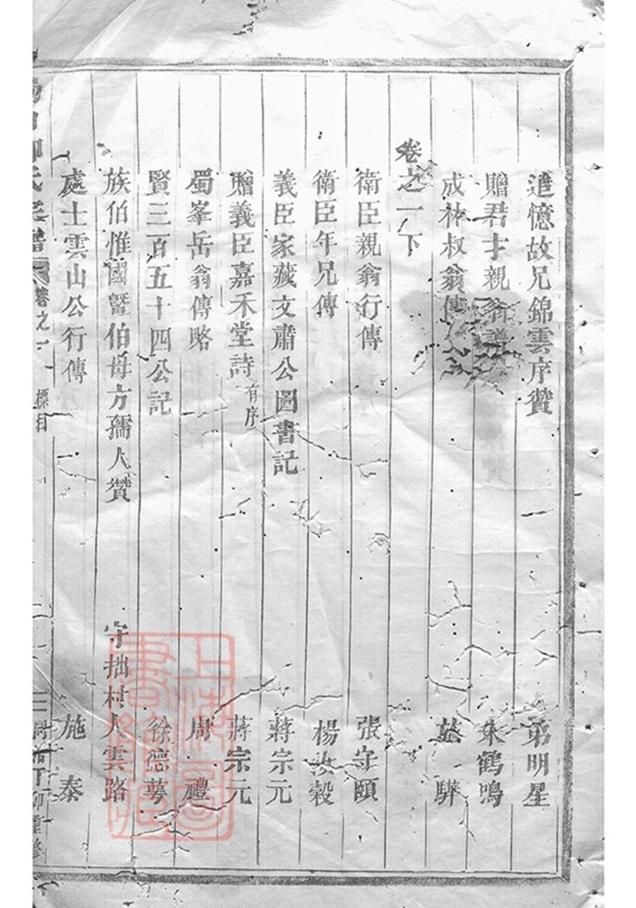 追憶故兄錦雲序贊 弟明星
贈君士親翁 朱鶴鳴
成林叔翁傳 驊
卷之一下
衛臣親翁行傳 張守頤
衛臣年兄傳 楊汝穀
義臣家藏文肅公圖書記 蔣宗元
贈義臣嘉禾堂詩有序 蔣宗元
蜀峯岳翁傳略 周禮
賢三百五十四公記 徐德
族伯惟國暨伯母方孺人贊 守拙村人雲路
處士雲山公行傳 施泰
氏 譜 卷之一 標目 二 同治丁卯重修